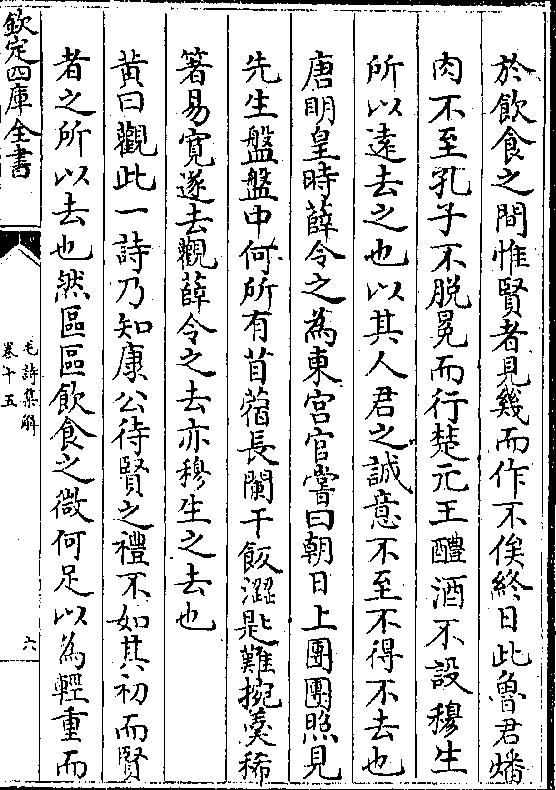 於飲食之間惟賢者見幾而作不俟終日此魯君燔
肉不至孔子不脱冕而行楚元王醴酒不設穆生
所以遠去之也以其人君之誠意不至不得不去也
唐明皇時薛令之為東宫官嘗曰朝日上團團照見
先生盤盤中何所有苜蓿長闌干飯澀匙難挽羮稀
箸易寛遂去觀薛令之去亦穆生之去也
黄曰觀此一詩乃知康公待賢之禮不如其初而賢
者之所以去也然區區飲食之微何足以為輕重而
欽定四庫全書
毛詩集解
卷十五
六